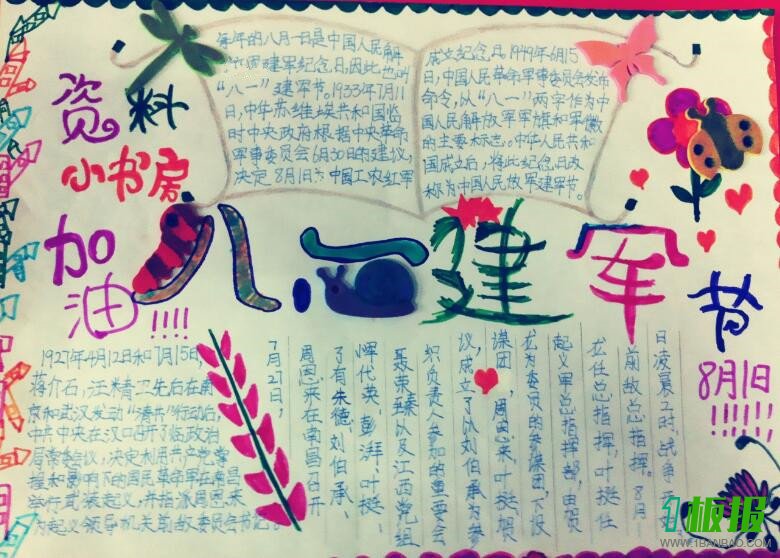 每年的八月一日是中国人民解
建军纪念日,因此也叫
“八一”建军节。1933年7月11
日,中华苏维埃共和国临
时中央政府根据中央革命
军事委员会6月30日的建议,
决定8月1日为中国工农红军
成立纪念日。1949年6月15
日,中国人民革命军事委员会发布
命令,以“八一”两字作为中
国人民解放军军旗和军徽
的主要标志。中华人民共和
国成立后,将此纪念日改
称为中国人民放军建军节。
资料
小书房
加油!!!!
八一建军节
8月1日
!!!!!!
1927年4月12日和7月15日,
蒋介石,汪精卫先后在南
京和武汉发动“清共”行动后,
中共中央在汉口召开了临政治
局常委会议,决定利用共产党掌
握和影响下的国民革命军在南昌
举行武装起义,并指派周恩来
为起义领导机关前敌委员会书记。
7月21日,
周恩来在南昌召开
了有朱德,刘伯承,
恽代英,彭湃,叶挺,
聂荣臻以及江西党组
织负责人参加的重要会
议,成立了以刘伯承为参
谋团,周恩来,叶挺,贺
龙为委员的参谋团,下设
起义军总指挥部,由贺
龙任总指挥,叶挺任
前敌总指挥。8月1
日凌晨2时,战争
板报
WWW.1BANBAO.COM